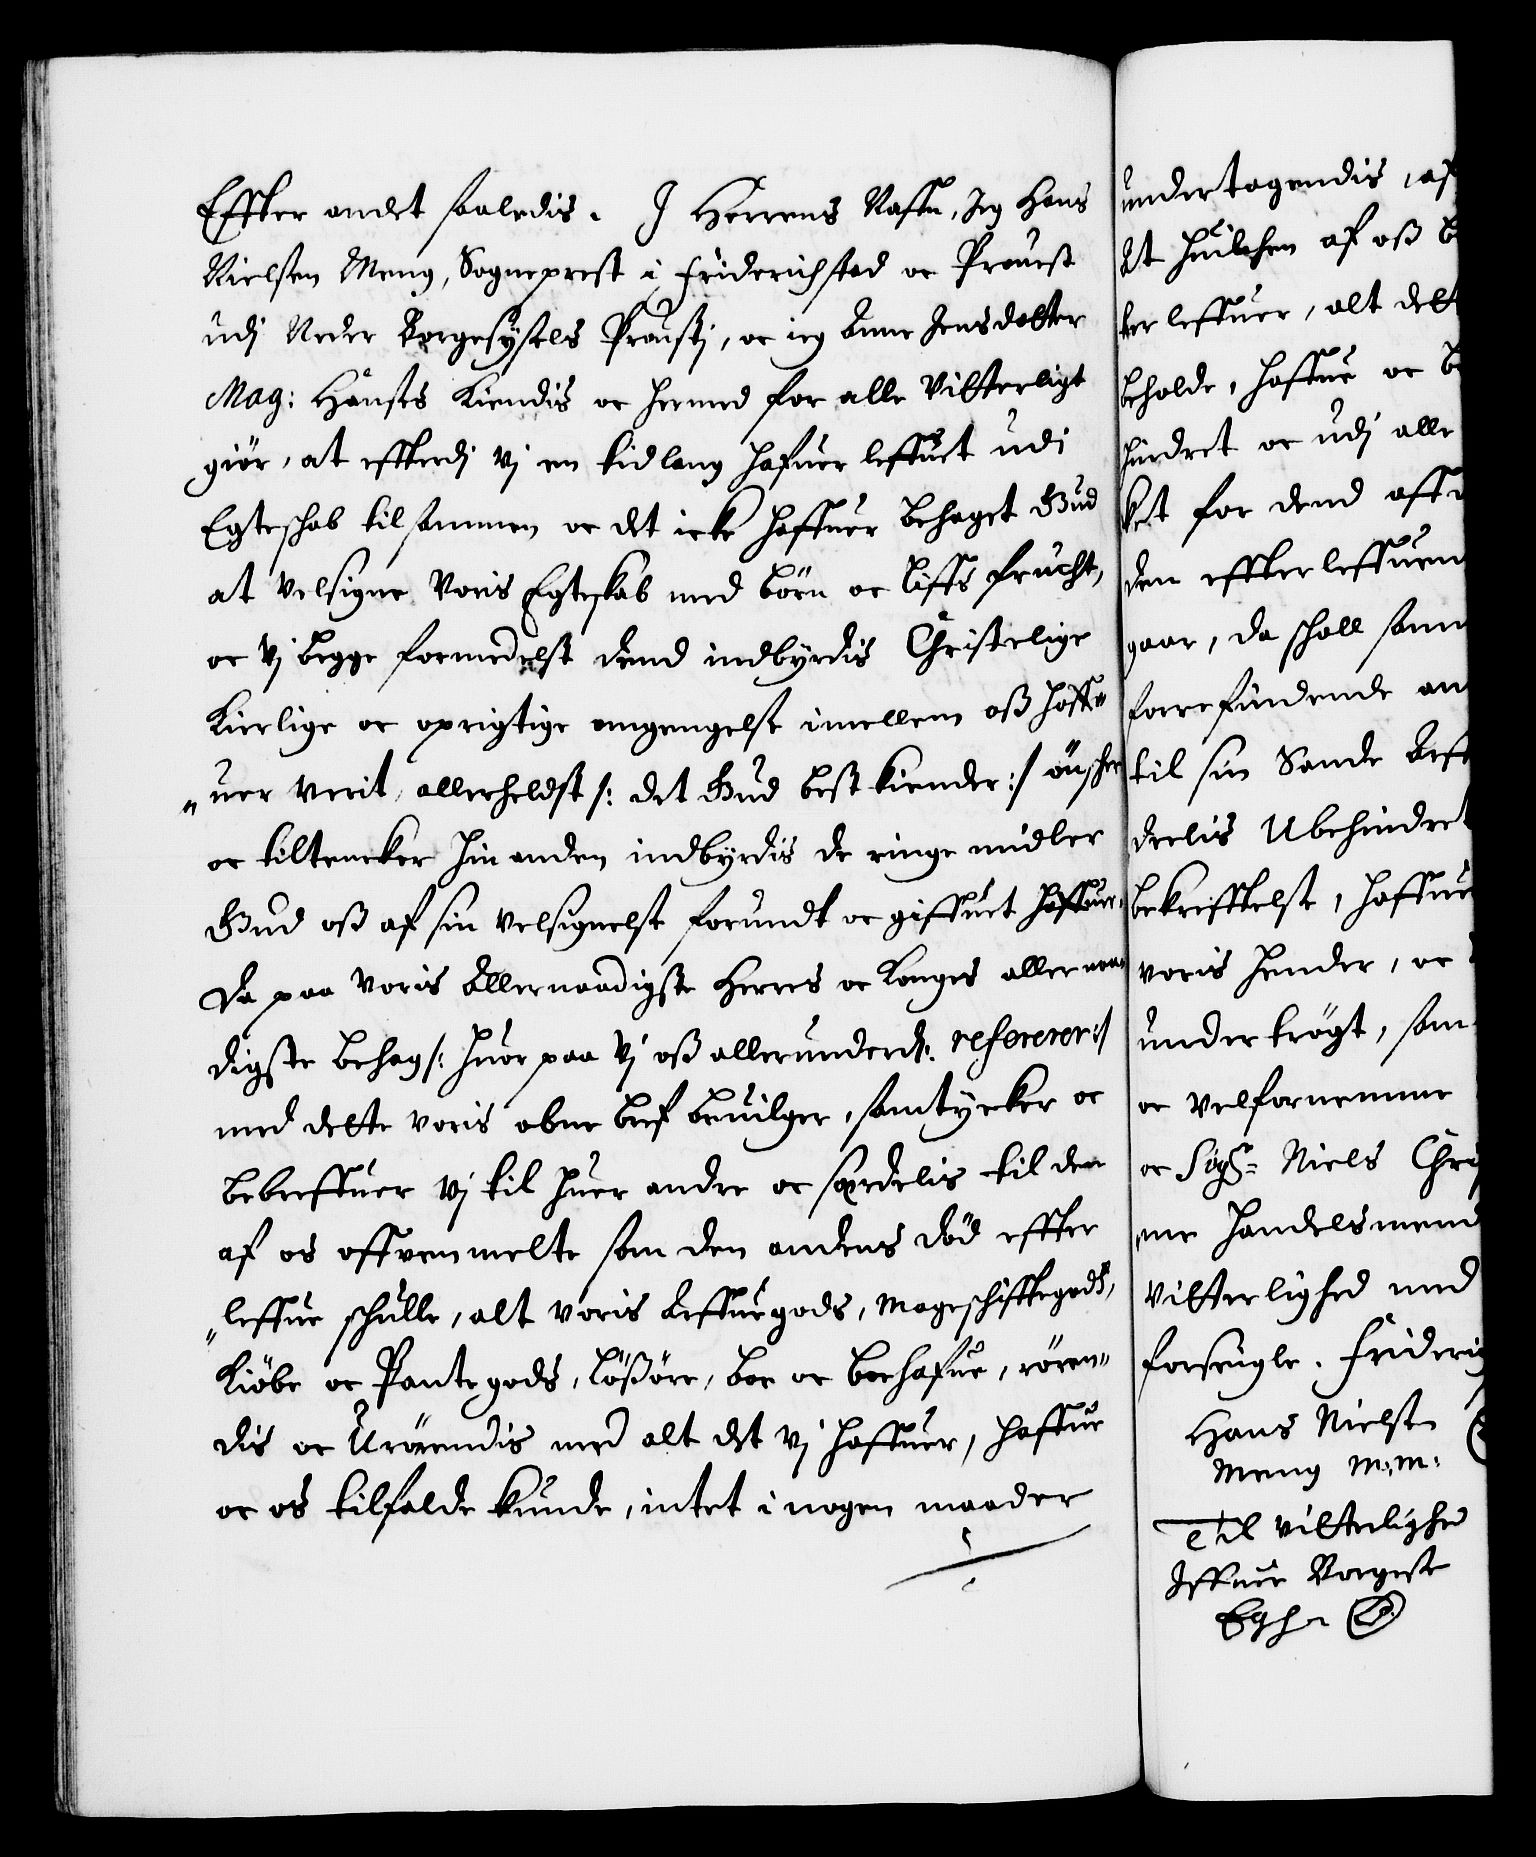 Effter andet saaledis. I Herrens Nafn, Jeg Hans
Nielsen Meng, Sogneprest i Friderichstad oc Prouest
udj Neder Borgesysels Proustj, oc ieg Anne Jensdatter
Mag: Hanses Kiendis oc hermed for alle Vitterligt
giör, at effterdj Vj en tidlang hafuer leffuet udi
Egteschab tilsammen oc det icke haffuer behaget Gud
at velsigne Voris Egteskab med börn oc Liffs frucht,
oc Vj begge formedelst dend indbyrdis Christelige
Kierlige oc oprigtige omgengelse imellem oß haff„
„uer verit, allerheldst /: det Gud best kiender :/ önscher
oc tiltencker hin anden indbyrdis de ringe midler
Gud oß af sin velsignelse forundt oc giffuet haffuer,
Da paa Voris Allernaadigste Herres oc Konges allernaa„
digste behag /: huor paa Vj oß allerunderd: referer :/
med dette voris obne bref beuilger, samtycker oc
bebreffuer Vj til huer andre oc særdelis til den
af os offvenmelte som den andens död effter
„leffue schulle, alt voris Arffuegods, Mageschifftegods,
Kiöbe oc Pantegods, lößöre, boe oc boehafue, rören„
dis oc Urörendis med alt det Vj haffuer, haffue
oc os tilfalde kunde, intet i nogen maader
undertagendis, af
At huilchen af oß
ter leffuer, alt dett
beholde, haffue oc
hindret oc udj alle
ket for dend
den effterleffuen
gaar, da schall sam
forrefindende
til sin Sande Arf
deelis Ubehindret
bekrefftelse, haffue
voris Hender, oc
undertrögt, sam
oc velfornemme
oc Sög: Niels Chri
me Handelsmend
vitterlighed med
forsegle. Friderig
Hans Nielsen
Meng m: m:
Til vitterlighed
Iffuer Borgese
Egh